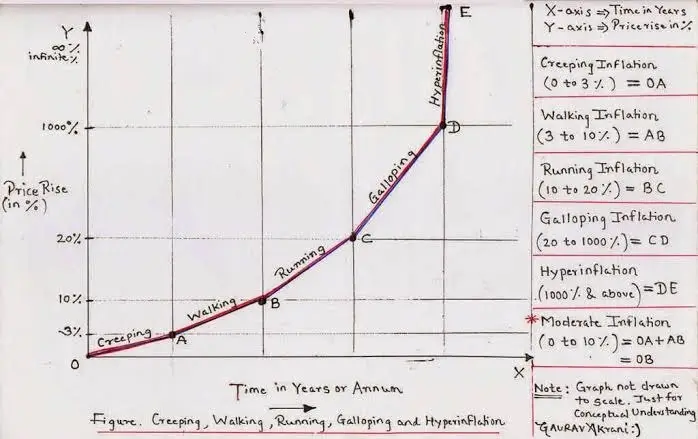 Y
∞%
infinite%
1000%
Price Rise
(in %)
20%
10%
3%
O
Creeping
A
Walking
B
Running
C
Galloping
D
Hyperinflation
E
X
Time in Years or Annum
Figure. Creeping, Walking, Running, Galloping and Hyperinflation
X-axis ⇒ Time in Years
Y-axis ⇒ Price rise in %
Creeping Inflation
(0 to 3%) = OA
Walking Inflation
(3 to 10%) = AB
Running Inflation
(10 to 20%) = BC
Galloping Inflation
(20 to 1000%) = CD
Hyperinflation
(1000% & above) = DE
* Moderate Inflation
(0 to 10%) = OA+AB
= OB
Note: Graph not drawn
to scale. Just for
Conceptual Understanding
GAURAV Akrani:)